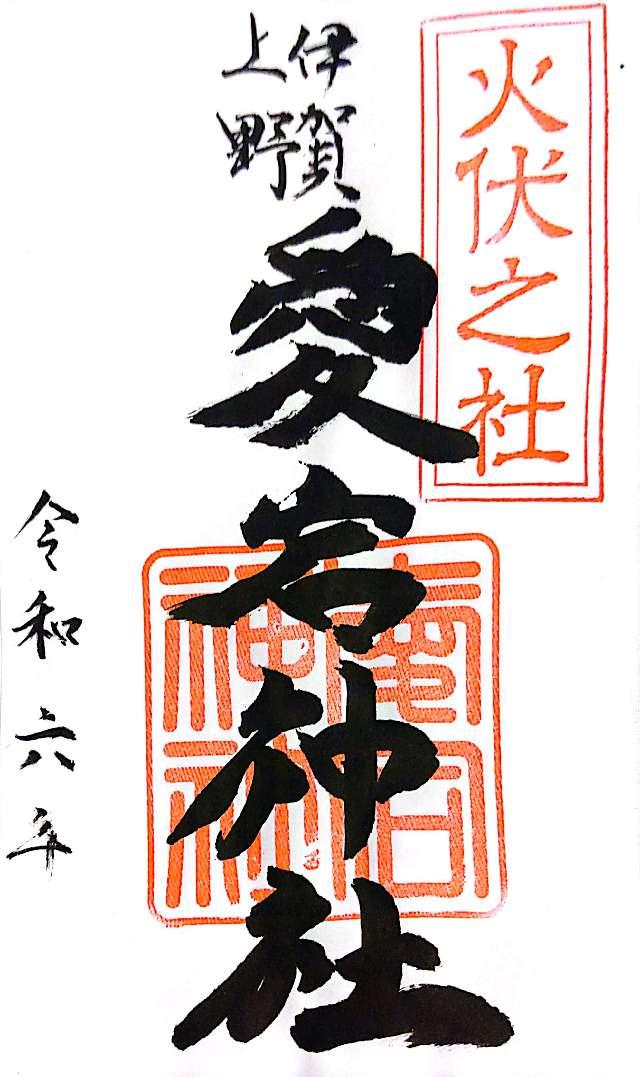 火伏之社
伊賀
上野
愛宕神社
令和六年